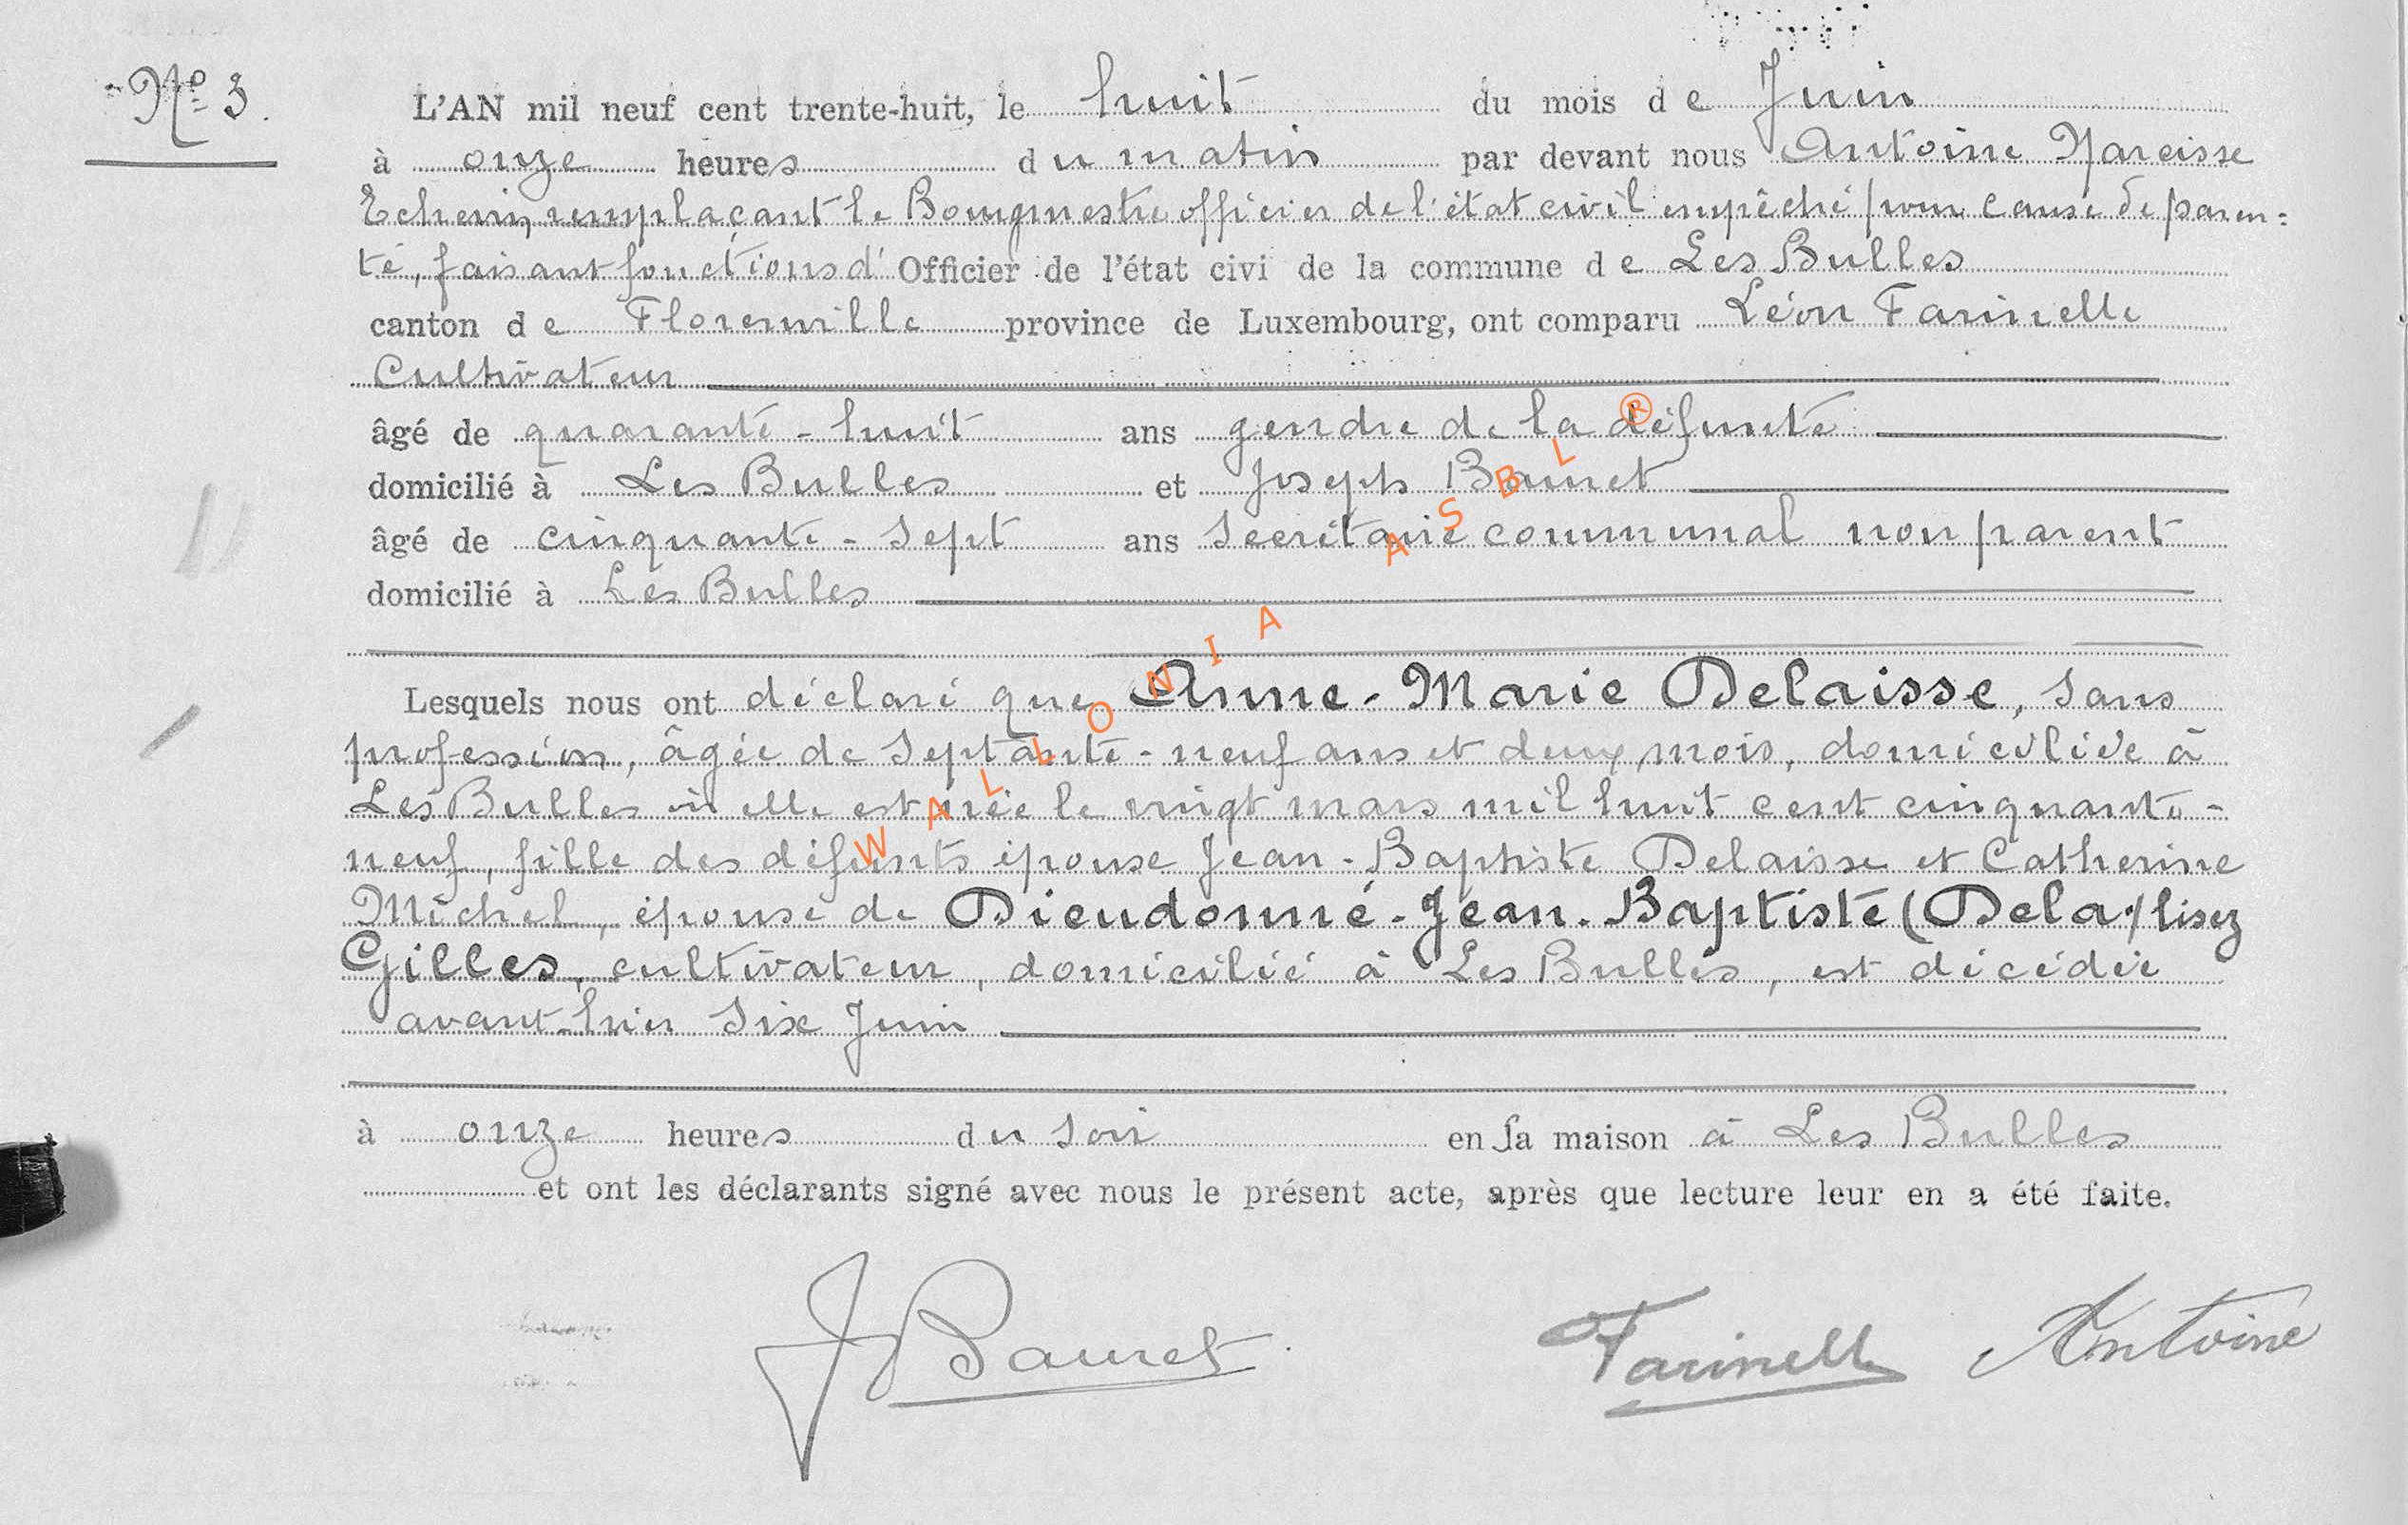 N° 3.
L'AN mil neuf cent trente-huit, le huit du mois de Juin
à onze heures du matin par devant nous Antoine Narcisse
Echevin remplaçant le Bourgmestre officier de l'état civil empêché pour cause de paren=
té, faisant fonctions d' Officier de l'état civi de la commune de Les Bulles
canton de Florenville province de Luxembourg, ont comparu Léon Farinelle
Cultivateur
âgé de quarante-huit ans gendre de la défunte
domicilié à Les Bulles et Joseph Bauret
âgé de cinquante-sept ans Secrétaire communal non parent
domicilié à Les Bulles
Lesquels nous ont déclaré que Anne-Marie Delaisse, sans
profession, âgée de septante-neuf ans et deux mois, domiciliée à
Les Bulles où elle est née le vingt mars mil huit cent cinquante-
neuf, fille des défunts épouse Jean-Baptiste Delaisse et Catherine
Michel, épouse de Dieudonné-Jean-Baptiste (Dela) lisez
Gilles, cultivateur, domicilié à Les Bulles, est décédée
avant-hier six Juin
à onze heures du soir en sa maison à Les Bulles
et ont les déclarants signé avec nous le présent acte, après que lecture leur en a été faite.
J Bauret Farinelle Antoine
WALLONIA ASBL ®